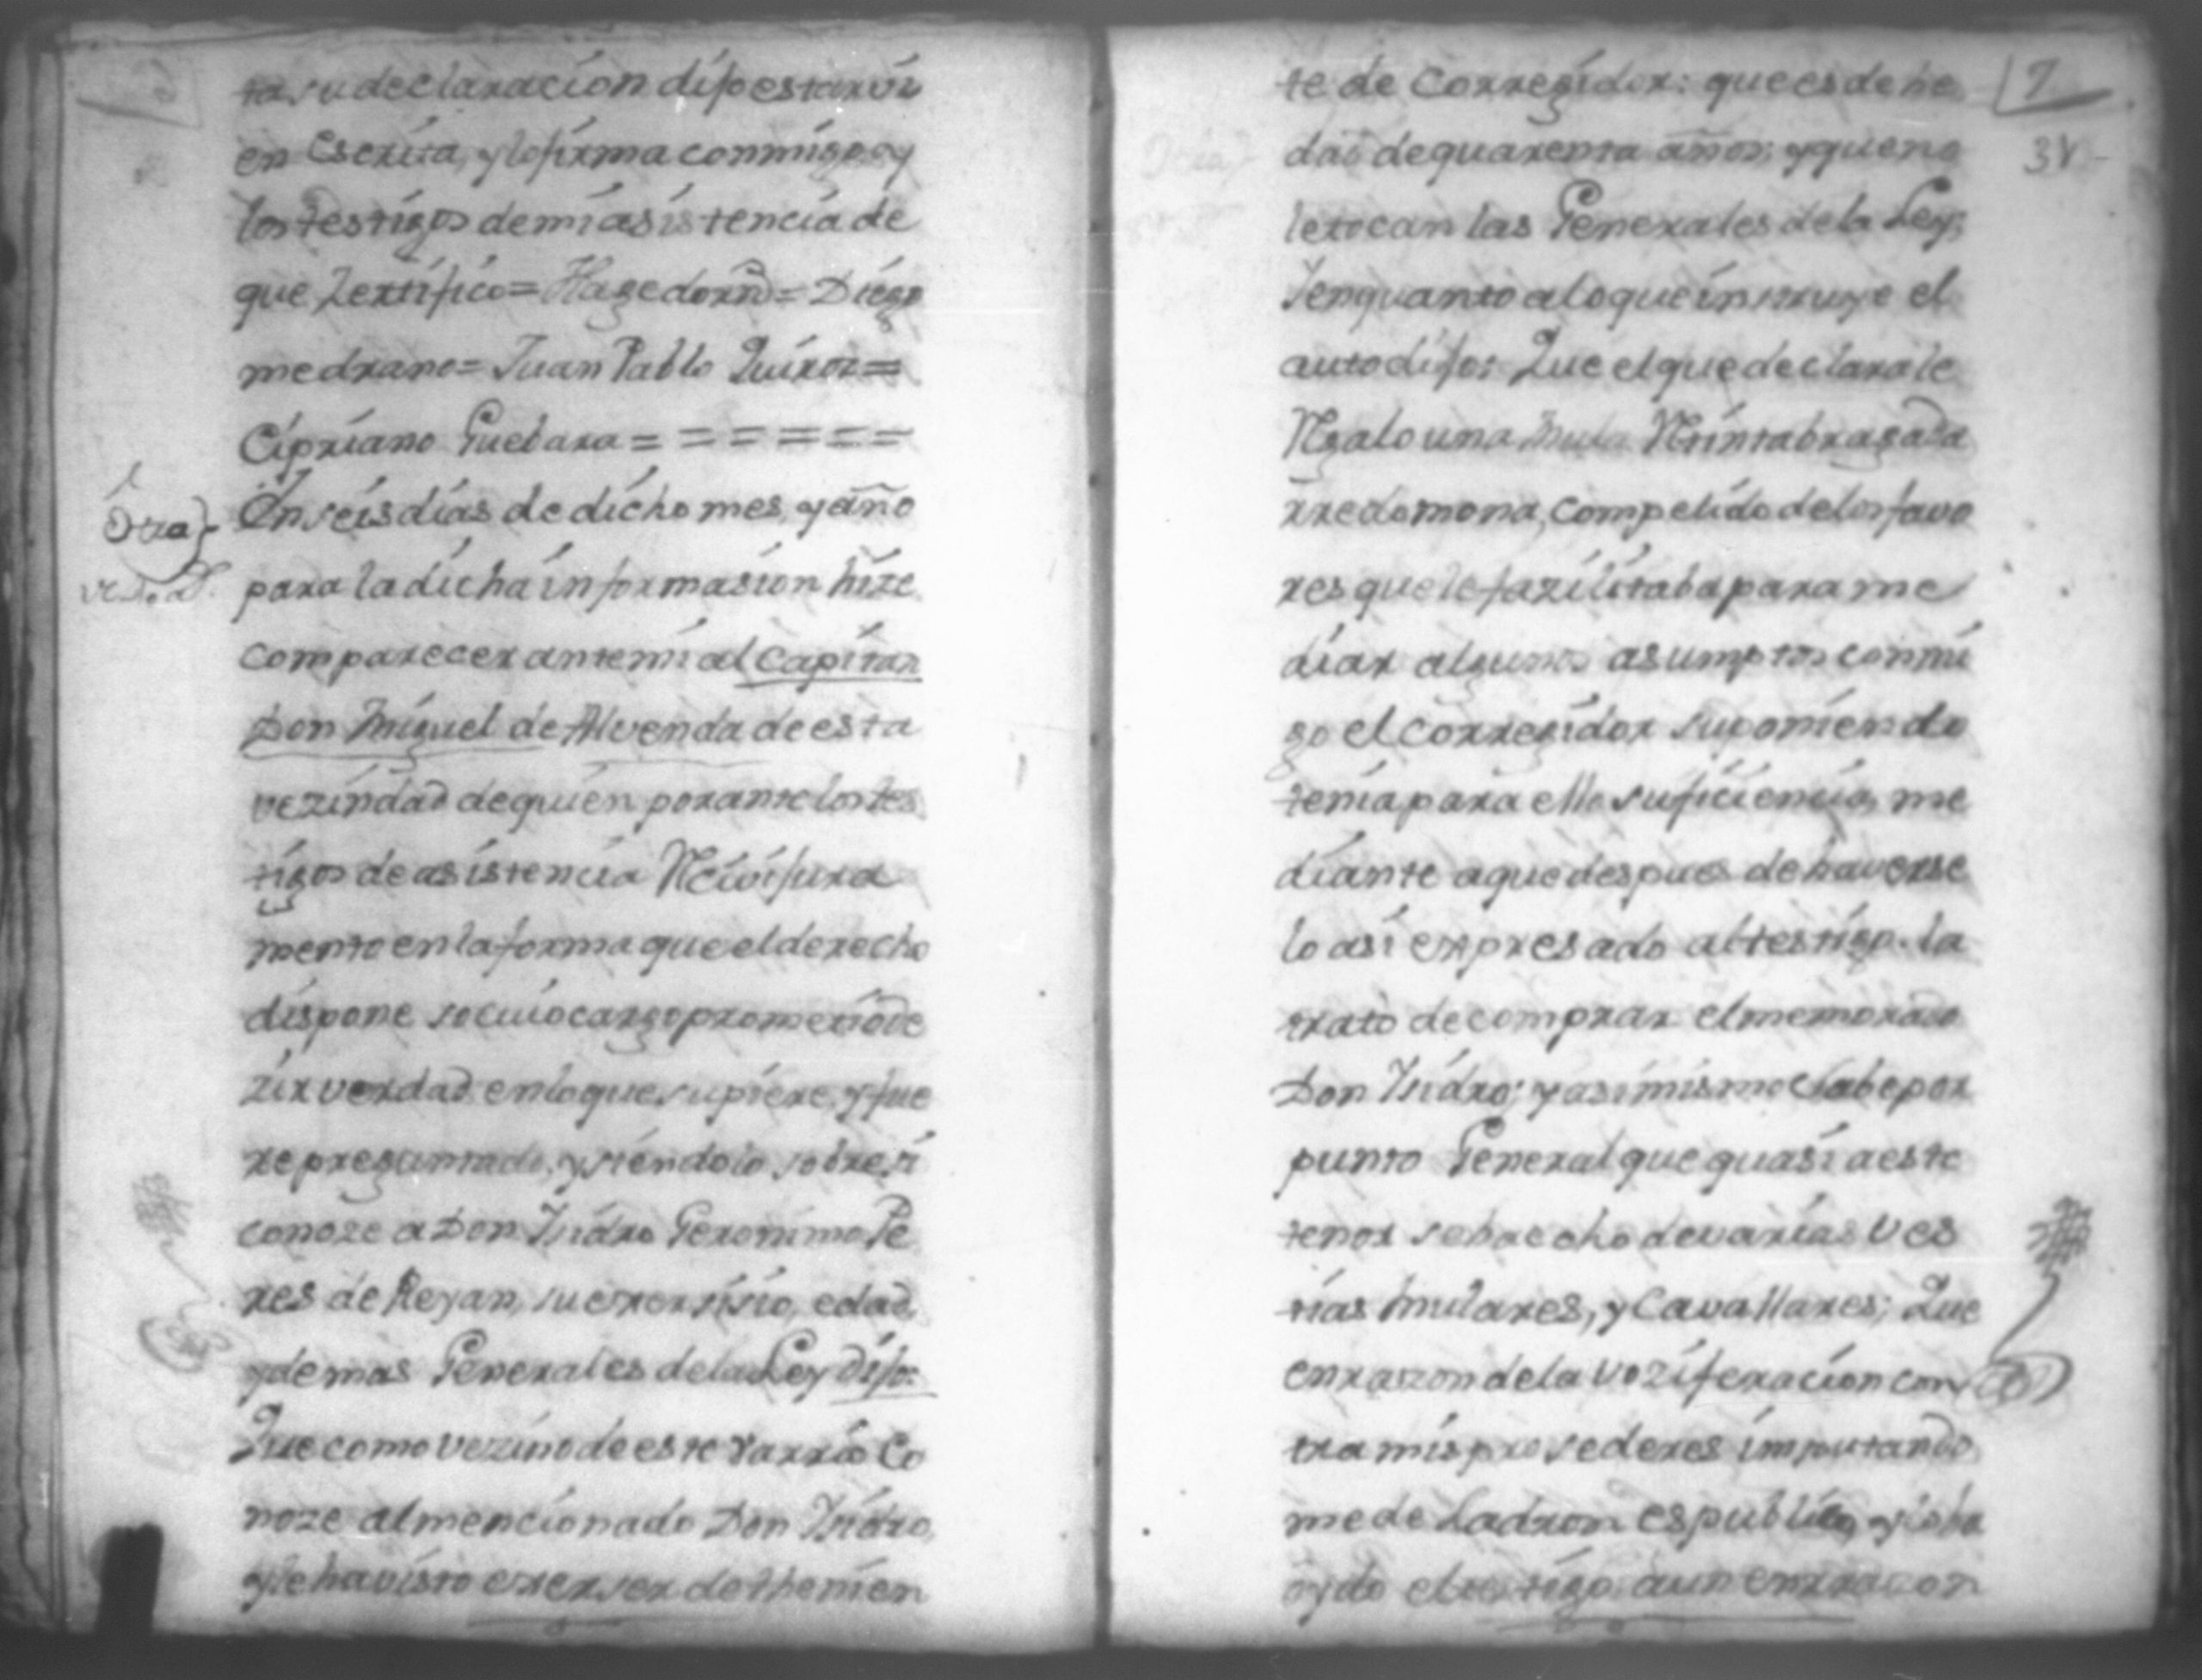 ta su declaracion dijo estar vi
en Escrita, y lo firma conmigo y
los testigos de mi asistencia de
que Zertifico = Hagedorn = Diego
medrano = Juan Pablo Quiroz =
Cipriano Guebara = = = = = =
Otra} En seis dias de dicho mes, y año
para la dicha informasion hize
comparecer ante mi al Capitan
Don Miguel de Alvenda de esta
vezindad de quien por ante los tes
tigos de asistencia Reivi jura
mento en la forma que el derecho
dispone so cuio cargo prometio de
zir verdad en lo que supiere, y fue
re preguntado, y siendolo sobre si
conoze a Don Isidro Geronimo Pe
res de Reyan, su exersisio, edad,
y demas Generales de la Ley Dijo:
Que como vezino de este Varrio Co
noze al mencionado Don Isidro,
y le ha visto exerser de thenien
7
te de Corregidor: que es de he
dad de quarenta años; y que no
le tocan las Generales de la Ley;
Y en quanto a lo que instruye el
auto dijo: Que el que declara le
Regalo una Mula Retinta bragada
rredomona, compelido de los favo
res que le fazilitaba para me
diar algunos asumptos conmi
go el Corregidor suponiendo
tenia para ello suficiencia, me
diante a que despues de haverse
lo asi expresado al testigo. la
trato de comprar el memorado
Don Isidro; y asimismo Sabe por
punto General que quasi a este
tenor se ha echo de varias ves
tias Mulares, y Cavallares; Que
en razon de la voziferacion con
tra mis prosederes imputando
me de Ladron es publico, y lo ha
oydo el testigo aun en razon